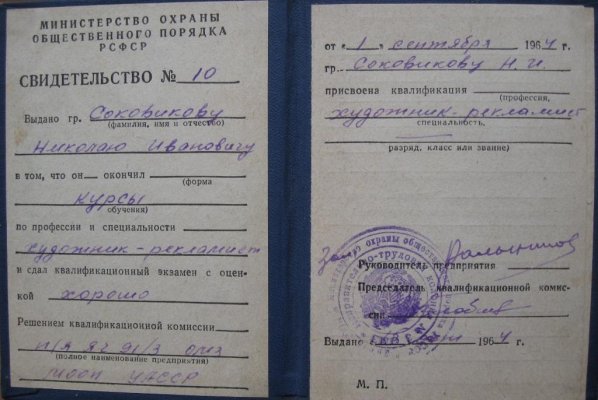 МИНИСТЕРСТВО ОХРАНЫ
ОБЩЕСТВЕННОГО ПОРЯДКА
РСФСР
СВИДЕТЕЛЬСТВО № 10
Выдано гр. Соковикову
(фамилия, имя и отчество)
Николаю Ивановичу
в том, что он окончил
(форма
курсы
обучения)
по профессии и специальности
художник-рекламист
и сдал квалификационный экзамен с оцен-
кой хорошо
Решением квалификационной комиссии
п/я ЯЧ 91/3
(полное наименование предприятия)
МООП УАССР
от "1" сентября 1964 г.
гр. Соковикову Н. И.
присвоена квалификация
(профессия,
художник-рекламист
специальность,
разряд, класс или звание)
Руководитель предприятия
Председатель квалификационной комис-
сии
Выдано 1964 г.
М. П.